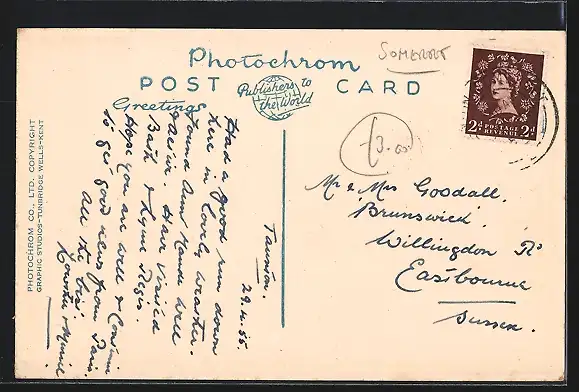 SOMERSET
Photochrom
POST CARD
Greetings
Publishers to
the World
2D POSTAGE 2D
REVENUE
£3.00
PHOTOCHROM CO., LTD. COPYRIGHT
GRAPHIC STUDIOS-TUNBRIDGE WELLS-KENT
Taunton.
29.4.55.
Had a good run down
here in lovely weather.
Found Ann Maude well
& active. Have visited
Bath & Lyme Regis.
Hope you are well & continue
to get good news from Paris.
All the best
Mr & Mrs Goodall.
Brunswick.
Willingdon Rd
Eastbourne
Sussex.